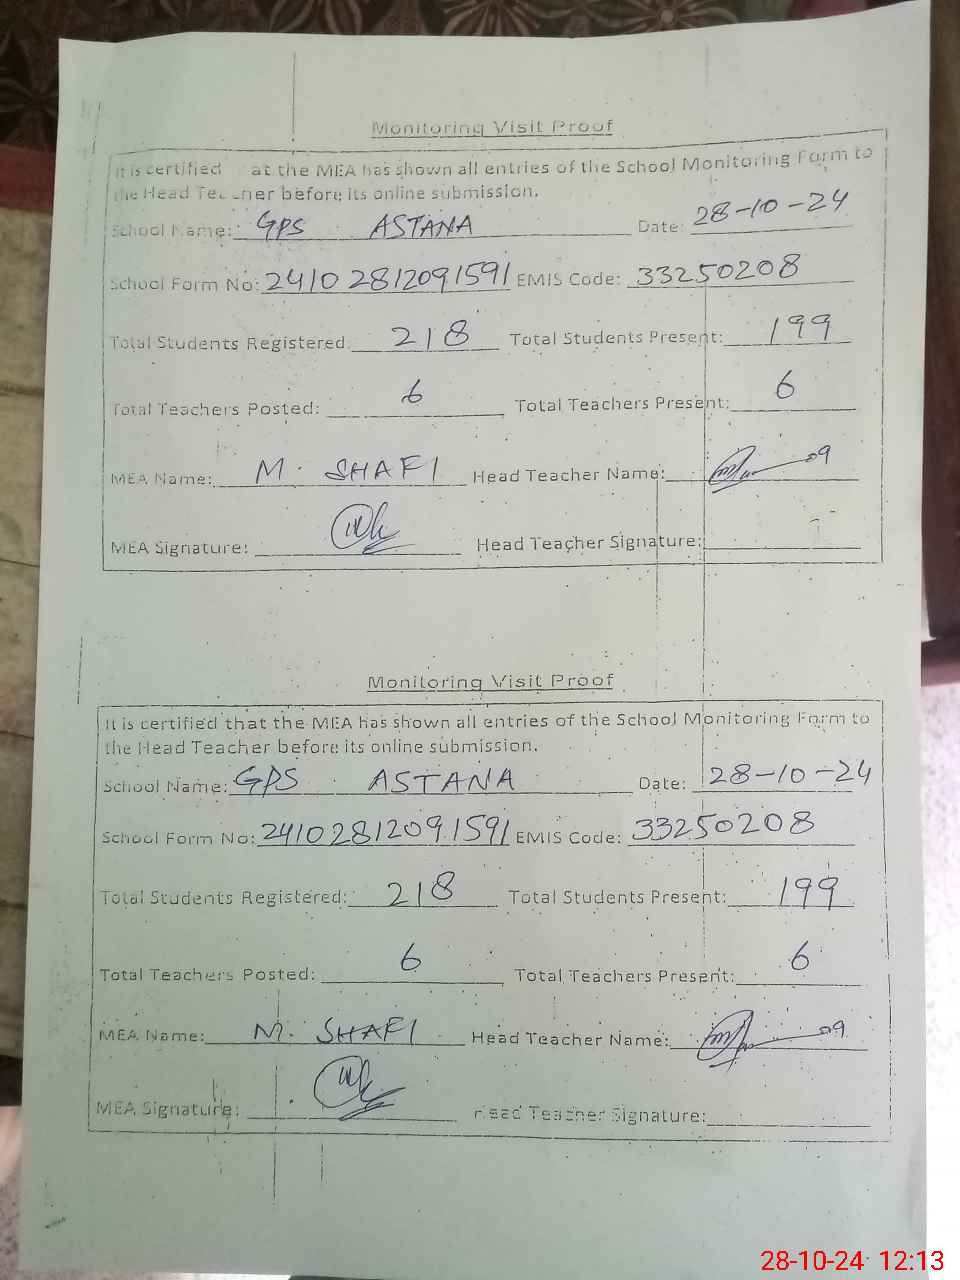 Monitoring Visit Proof
It is certified at the MEA has shown all entries of the School Monitoring Form to
the Head Teacher before its online submission.
School Name: GPS ASTANA Date: 28-10-24
School Form No: 24102812091591 EMIS Code: 33250208
Total Students Registered: 218 Total Students Present: 199
Total Teachers Posted: 6 Total Teachers Present: 6
MEA Name: M. SHAFI Head Teacher Name:
MEA Signature: Head Teacher Signature:
Monitoring Visit Proof
It is certified that the MEA has shown all entries of the School Monitoring Form to
the Head Teacher before its online submission.
School Name: GPS ASTANA Date: 28-10-24
School Form No: 24102812091591 EMIS Code: 33250208
Total Students Registered: 218 Total Students Present: 199
Total Teachers Posted: 6 Total Teachers Present: 6
MEA Name: M. SHAFI Head Teacher Name:
MEA Signature: Head Teacher Signature:
28-10-24 12:13